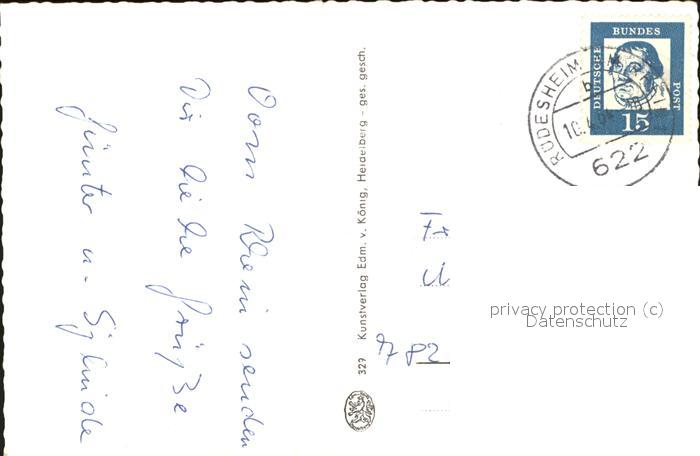 Vom Rhein senden
Dir liebe Grüße
Günter u. Siglinde
329 Kunstverlag Edm. v. König, Heidelberg - ges. gesch.
DEUTSCHE BUNDES POST
15
RÜDESHEIM
b
10.4.64
622
Fr
782
privacy protection (c)
Datenschutz